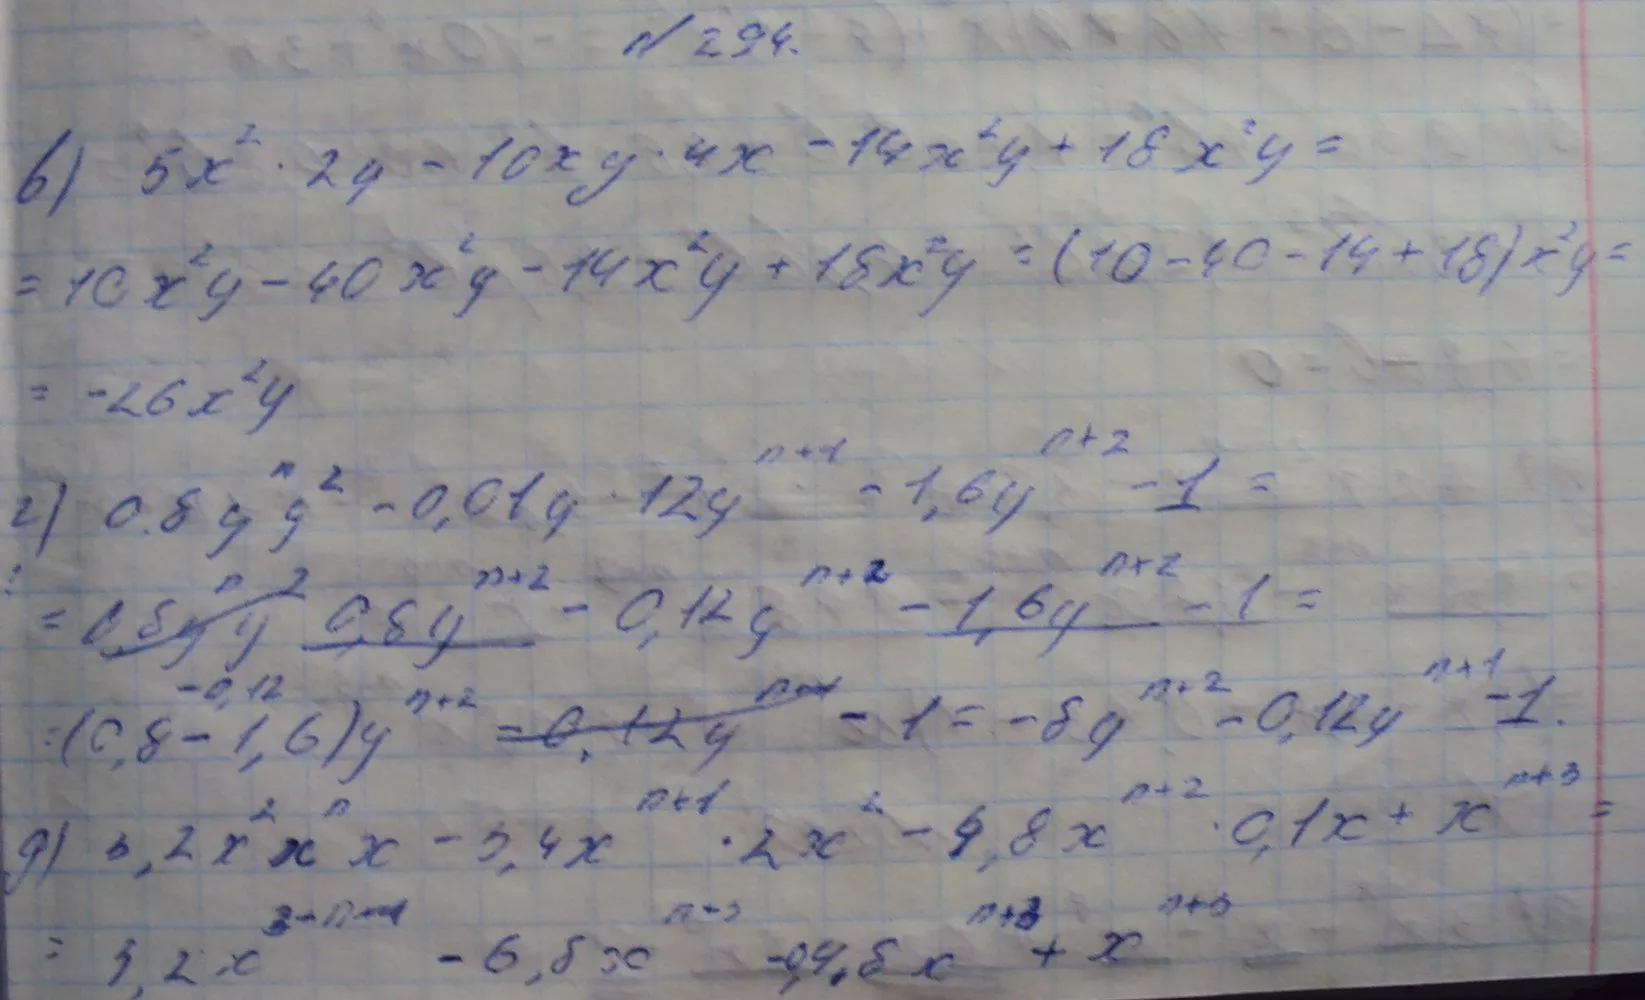 № 294.
в) 5x² · 2y - 10xy · 4x - 14x²y + 18x²y =
= 10x²y - 40x²y - 14x²y + 18x²y = (10 - 40 - 14 + 18)x²y =
= -26x²y
г) 0.8yⁿy² - 0,01y · 12yⁿ⁺¹ - 1,6yⁿ⁺² - 1 =
= 0,8yⁿy² 0,8yⁿ⁺² - 0,12yⁿ⁺² - 1,6yⁿ⁺² - 1 =
-0,12
= (0,8 - 1,6)yⁿ⁺² = 0,12yⁿ⁺¹ - 1 = -8yⁿ⁺² - 0,12yⁿ⁺¹ - 1.
д) 5,2x²xⁿx - 3,4xⁿ⁺¹ · 2x² - 4,8xⁿ⁺² · 0,1x + xⁿ⁺³ =
- 6,8x + xⁿ⁺³